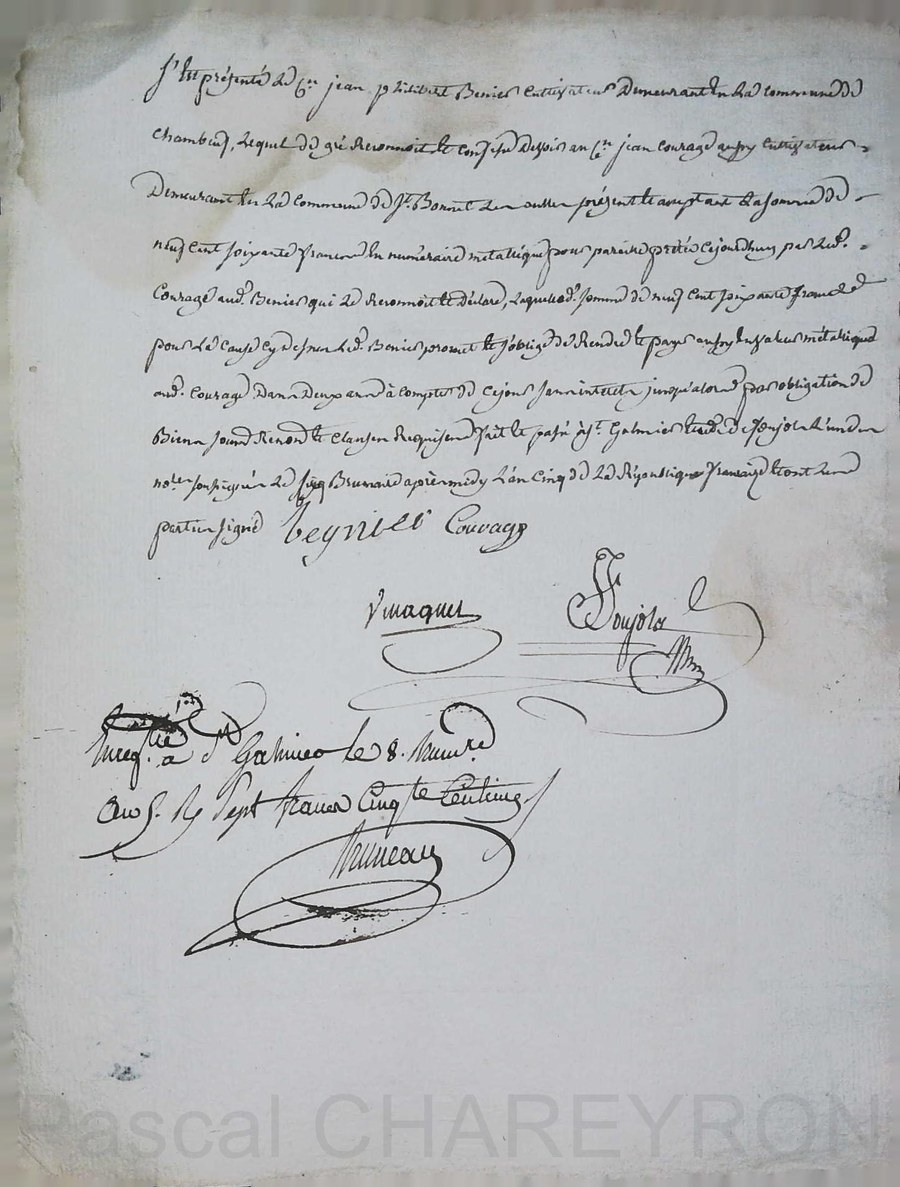 S'est présenté le C.en jean philibert Benier Cultivateur Demeurant en La Commune de
Chambeuf, Lequel de gré Reconnoit et Confesse Devoir au C.en jean Courage aussy Cultivateur
Demeurant en La Commune de S.t Bonnet présent et acceptant La somme de
neuf Cent soixante francs En numéraire métallique pour pareille prêtée Cejourdhuy par Led.
Courage aud. Benier qui Le Reconnoit et Déclare, Laquelle d. somme de neuf Cent soixante francs
pour La Cause Cy Dessus Led. Benier promet et s'oblige de Rendre et payer aussy En valeur métallique
aud. Courage Dans Deux ans à Compter de Ce jour sans interets jusqu'alors par obligation de
Biens Soumd. Renond. et Clauses Requises fait et passé à S.t Galmier Etude de Foujols L'un des
no.res soussignés Le Brumaire après midy L'an Cinq de La République française et ont Les
parties signé Beynier Courage
Vinaguet Foujols
Enreg.tré à S.t Galmier le 8. Brum.re
an 5. R. Sept francs Cinq.te Centimes
Bruneau
Pascal CHAREYRON